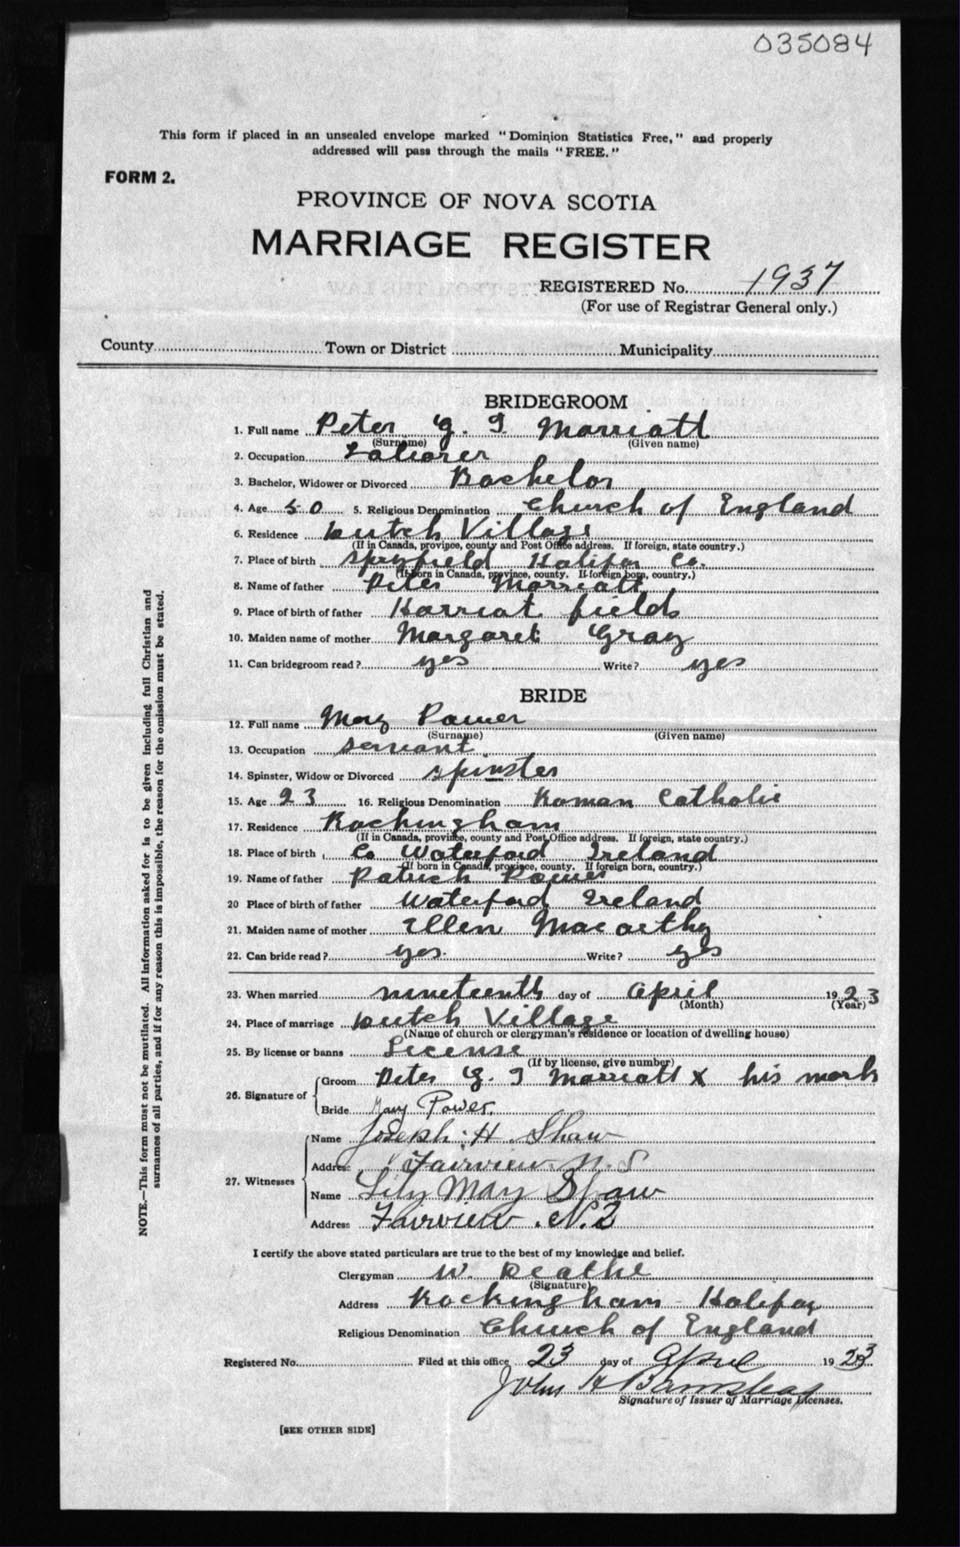 035084
This form if placed in an unsealed envelope marked "Dominion Statistics Free," and properly
addressed will pass through the mails "FREE."
FORM 2.
PROVINCE OF NOVA SCOTIA
MARRIAGE REGISTER
REGISTERED No. 1937
(For use of Registrar General only.)
County Town or District Municipality
BRIDEGROOM
1. Full name Peter G. I Marriatt
(Surname) (Given name)
2. Occupation Laborer
3. Bachelor, Widower or Divorced Bachelor
4. Age 50 5. Religious Denomination Church of England
6. Residence Dutch Village
(If in Canada, province, county and Post Office address. If foreign, state country.)
7. Place of birth Spryfield Halifax Co.
(If born in Canada, province, county. If foreign born, country.)
8. Name of father Peter Marriatt
9. Place of birth of father Harriat fields
10. Maiden name of mother Margaret Gray
11. Can bridegroom read? yes Write? yes
BRIDE
12. Full name Mary Power
(Surname) (Given name)
13. Occupation servant
14. Spinster, Widow or Divorced spinster
15. Age 23 16. Religious Denomination Roman Catholic
17. Residence Rockingham
(If in Canada, province, county and Post Office address. If foreign, state country.)
18. Place of birth Co Waterford Ireland
(If born in Canada, province, county. If foreign born, country.)
19. Name of father Patrick Power
20 Place of birth of father Waterford Ireland
21. Maiden name of mother Ellen Macarthy
22. Can bride read? yes. Write? yes
23. When married nineteenth day of April 1923
(Month) (Year)
24. Place of marriage Dutch Village
(Name of church or clergyman's residence or location of dwelling house)
25. By license or banns License
(If by license, give number)
26. Signature of Groom Peter G. I Marriatt X his mark
Bride Mary Power.
27. Witnesses Name Joseph H. Shaw
Address Fairview N.S
Name Lily May Shaw
Address Fairview. N.S
I certify the above stated particulars are true to the best of my knowledge and belief.
Clergyman W. Deathe
(Signature)
Address Rockingham - Halifax
Religious Denomination Church of England
Registered No. Filed at this office 23 day of April 1923
John H Barnstead
Signature of Issuer of Marriage Licenses.
[SEE OTHER SIDE]
NOTE.—This form must not be mutilated. All information asked for is to be given including full Christian and
surnames of all parties, and if for any reason this is impossible, the reason for the omission must be stated.